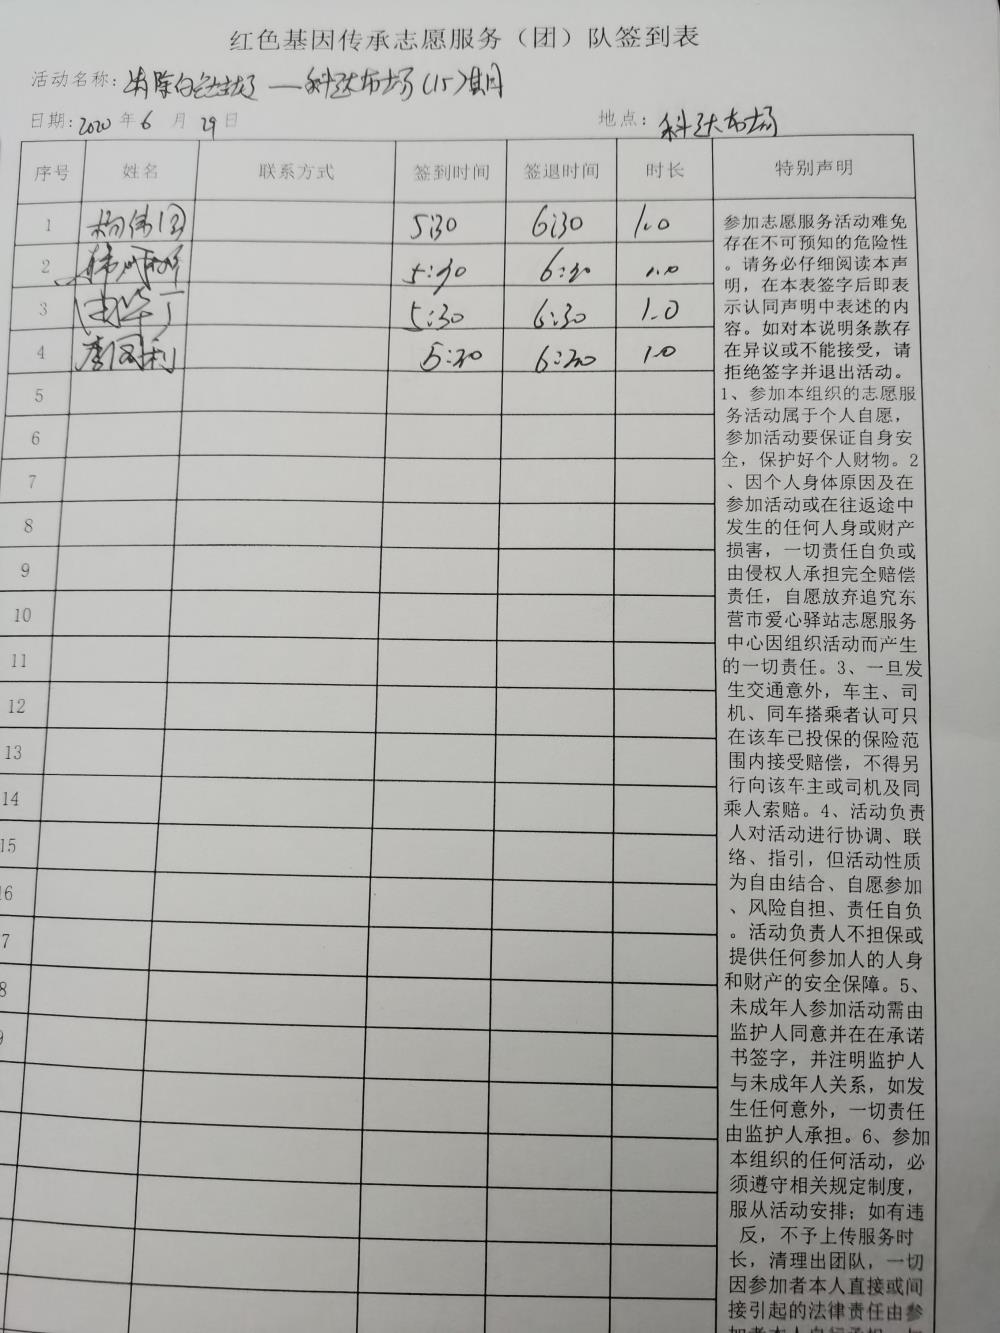 红色基因传承志愿服务（团）队签到表
活动名称：清除白色垃圾——科达市场（15）期
日期：2020年6月29日 地点：科达市场
序号 姓名 联系方式 签到时间 签退时间 时长 特别声明
1 杨伟国 5:30 6:30 1.0
2 5:30 6:30 1.0
3 5:30 6:30 1.0
4 李同利 5:30 6:30 1.0
5
6
7
8
9
10
11
12
13
14
15
16
7
8
9
参加志愿服务活动难免
存在不可预知的危险性
。请务必仔细阅读本声
明，在本表签字后即表
示认同声明中表述的内
容。如对本说明条款存
在异议或不能接受，请
拒绝签字并退出活动。
1、参加本组织的志愿服
务活动属于个人自愿，
参加活动要保证自身安
全，保护好个人财物。2
、因个人身体原因及在
参加活动或在往返途中
发生的任何人身或财产
损害，一切责任自负或
由侵权人承担完全赔偿
责任，自愿放弃追究东
营市爱心驿站志愿服务
中心因组织活动而产生
的一切责任。3、一旦发
生交通意外，车主、司
机、同车搭乘者认可只
在该车已投保的保险范
围内接受赔偿，不得另
行向该车主或司机及同
乘人索赔。4、活动负责
人对活动进行协调、联
络、指引，但活动性质
为自由结合、自愿参加
、风险自担、责任自负
。活动负责人不担保或
提供任何参加人的人身
和财产的安全保障。5、
未成年人参加活动需由
监护人同意并在在承诺
书签字，并注明监护人
与未成年人关系，如发
生任何意外，一切责任
由监护人承担。6、参加
本组织的任何活动，必
须遵守相关规定制度，
服从活动安排；如有违
反，不予上传服务时
长，清理出团队，一切
因参加者本人直接或间
接引起的法律责任由参